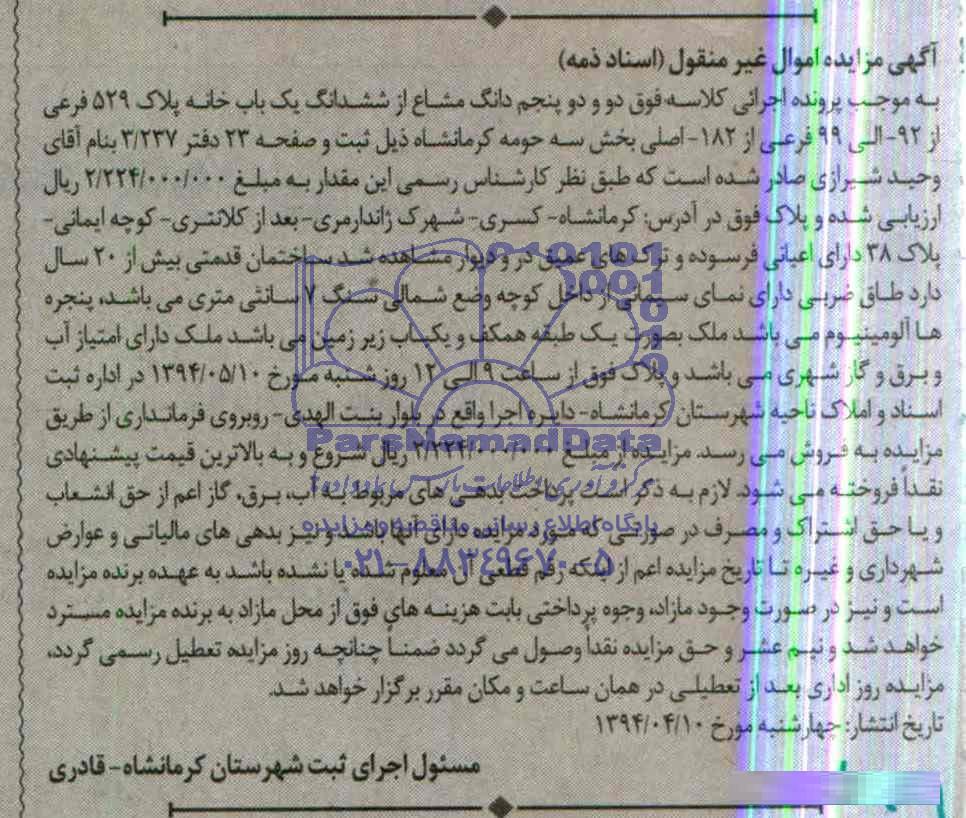 آگهی مزایده اموال غیر منقول (اسناد ذمه)
به موجب پرونده اجرائی کلاسه فوق دو و دو پنجم دانگ مشاع از ششدانگ یک باب خانه پلاک ۵۲۹ فرعی
از ۹۲- الی ۹۹ فرعی از ۱۸۲- اصلی بخش سه حومه کرمانشاه ذیل ثبت و صفحه ۲۳ دفتر ۳/۲۳۷ بنام آقای
وحید شیرازی صادر شده است که طبق نظر کارشناس رسمی این مقدار به مبلغ ۲/۲۲۴/۰۰۰/۰۰۰ ریال
ارزیابی شده و پلاک فوق در آدرس: کرمانشاه- کسری- شهرک ژاندارمری- بعد از کلانتری- کوچه ایمانی-
پلاک ۳۸ دارای اعیانی فرسوده و ترک های عمیق در و دیوار مشاهده شد ساختمان قدمتی بیش از ۲۰ سال
دارد طاق ضربی دارای نمای سیمانی از داخل کوچه وضع شمالی سنگ ۷ سانتی متری می باشد، پنجره
ها آلومینیوم می باشد ملک بصورت یک طبقه همکف و یکباب زیر زمین می باشد ملک دارای امتیاز آب
و برق و گاز شهری می باشد و پلاک فوق از ساعت ۹ الی ۱۲ روز شنبه مورخ ۱۳۹۴/۰۵/۱۰ در اداره ثبت
اسناد و املاک ناحیه شهرستان کرمانشاه- دایره اجرا واقع در بلوار بنت الهدی- روبروی فرمانداری از طریق
مزایده به فروش می رسد. مزایده از مبلغ ۲/۲۲۴/۰۰۰/۰۰۰ ریال شروع و به بالاترین قیمت پیشنهادی
نقداً فروخته می شود. لازم به ذکر است پرداخت بدهی های مربوط به آب، برق، گاز اعم از حق انشعاب
و یا حق اشتراک و مصرف در صورتی که مورد مزایده دارای آنها باشد و نیز بدهی های مالیاتی و عوارض
شهرداری و غیره تا تاریخ مزایده اعم از اینکه رقم قطعی آن معلوم شده یا نشده باشد به عهده برنده مزایده
است و نیز در صورت وجود مازاد، وجوه پرداختی بابت هزینه های فوق از محل مازاد به برنده مزایده مسترد
خواهد شد و نیم عشر و حق مزایده نقداً وصول می گردد ضمناً چنانچه روز مزایده تعطیل رسمی گردد،
مزایده روز اداری بعد از تعطیلی در همان ساعت و مکان مقرر برگزار خواهد شد.
تاریخ انتشار: چهارشنبه مورخ ۱۳۹۴/۰۴/۱۰
مسئول اجرای ثبت شهرستان کرمانشاه- قادری
ParsNamadData
پایگاه اطلاع رسانی مناقصه و مزایده
۰۲۱-۸۸۳۴۹۶۷۰-۵